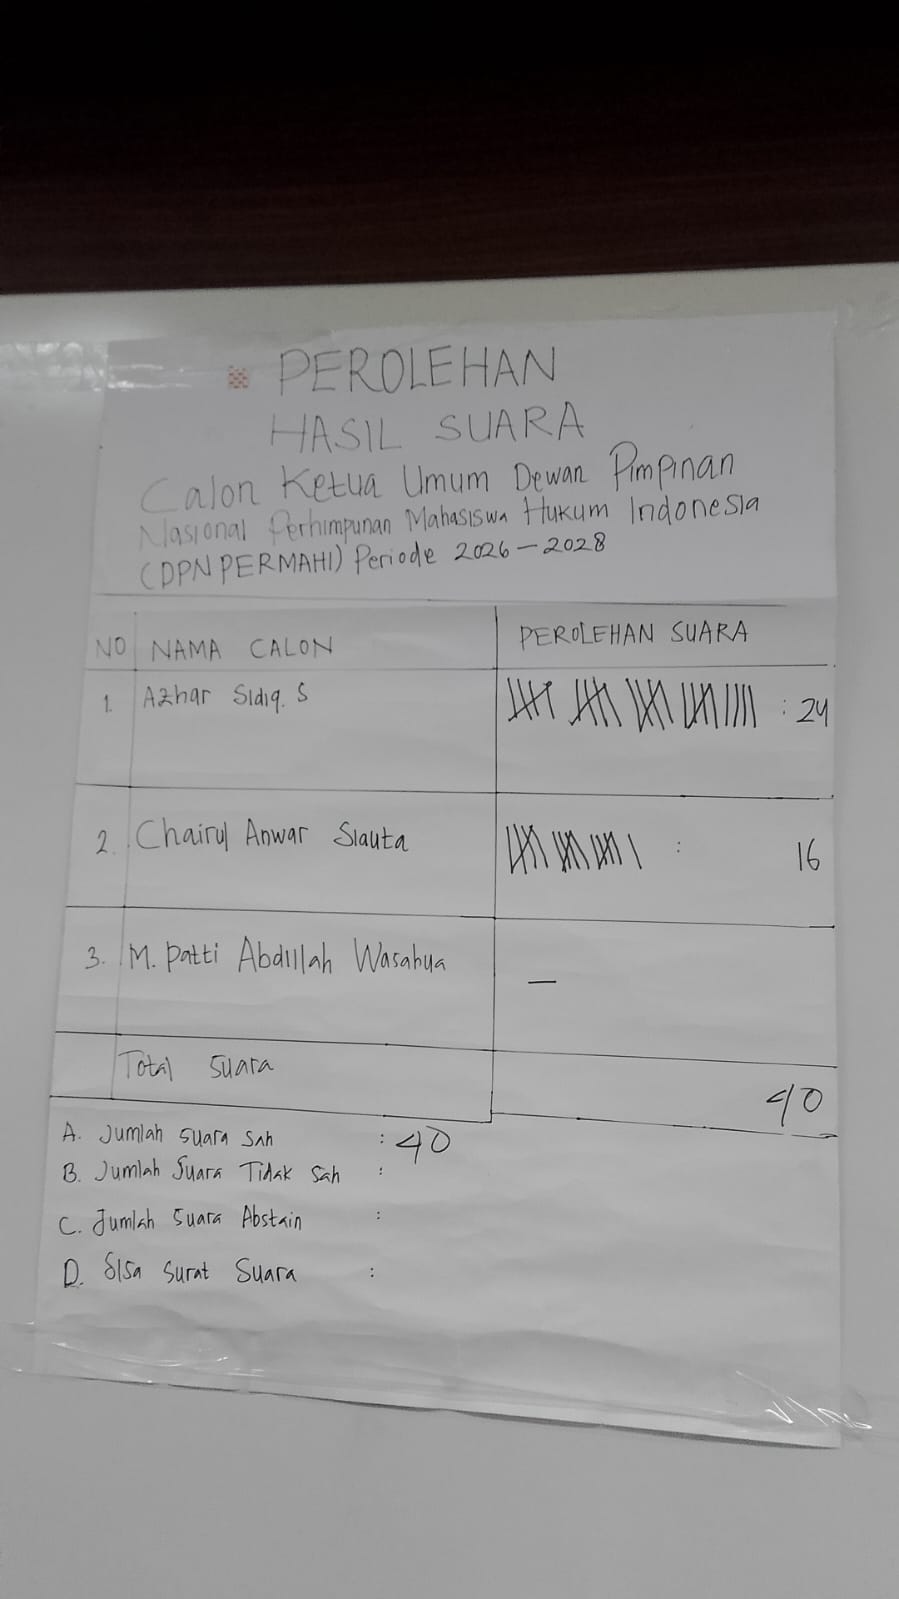 PEROLEHAN
HASIL SUARA
Calon Ketua Umum Dewan Pimpinan
Nasional Perhimpunan Mahasiswa Hukum Indonesia
(DPN PERMAHI) Periode 2026-2028
NO NAMA CALON PEROLEHAN SUARA
1. Azhar Sidiq. S : 24
2. Chairul Anwar Siauta : 16
3. M. Patti Abdillah Wasahua —
Total Suara 40
A. Jumlah Suara Sah : 40
B. Jumlah Suara Tidak Sah :
C. Jumlah Suara Abstain :
D. Sisa Surat Suara :